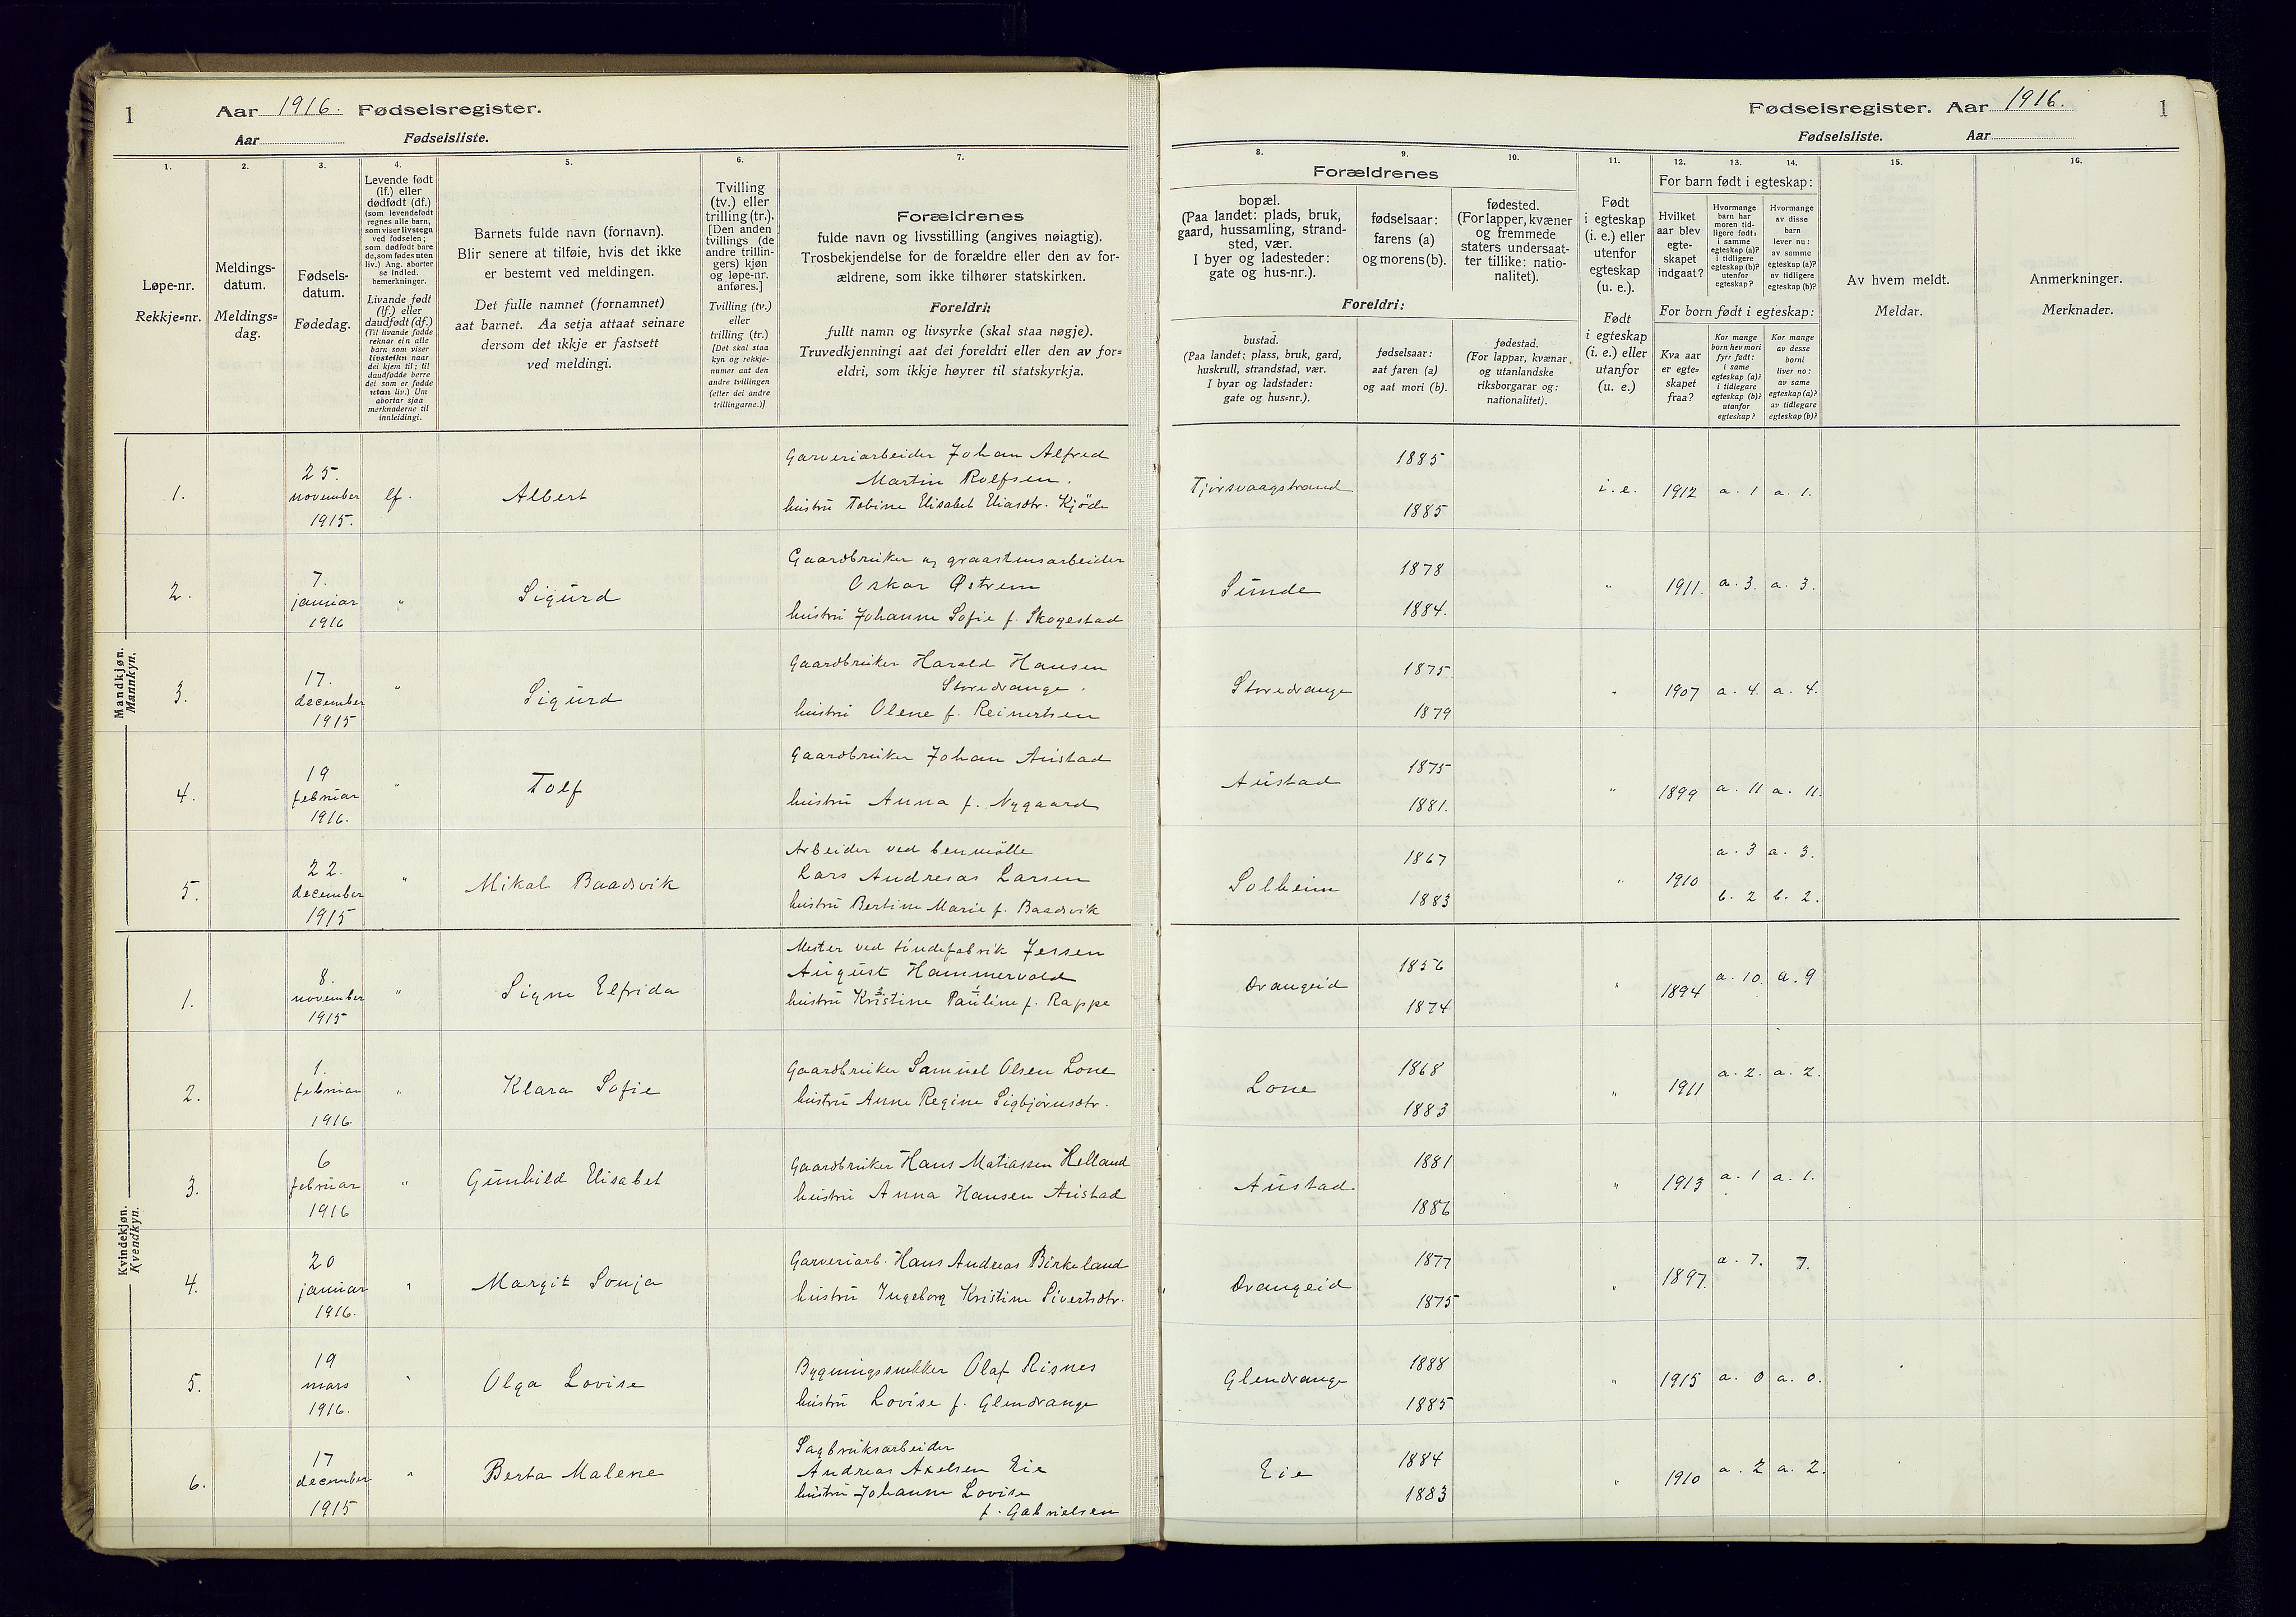 1
Aar 1916. Fødselsregister.
Aar Fødselsliste.
1.
2.
3.
4.
5.
6.
7.
Løpe-nr.
Rekkje=nr.
Meldings-
datum.
Meldings=
dag.
Fødsels-
datum.
Fødedag.
Levende født
(lf.) eller
dødfødt (df.)
(som levendefødt
regnes alle barn,
som viser livstegn
ved fødselen;
som dødfødt bare
de, som fødes uten
liv.) Ang. aborter
se indled.
bemerkninger.
Livande født
(lf.) eller
daudfødt (df.)
(Til livande fødde
reknar ein alle
barn som viser
livsteikn naar
dei kjem til; til
daudfødde berre
dei som er fødde
utan liv.) Um
abortar sjaa
merknaderne til
innleidingi.
Barnets fulde navn (fornavn).
Blir senere at tilføie, hvis det ikke
er bestemt ved meldingen.
Det fulle namnet (fornamnet)
aat barnet. Aa setja attaat seinare
dersom det ikkje er fastsett
ved meldingi.
Tvilling
(tv.) eller
trilling (tr.).
[Den anden
tvillings (de
andre trillin-
gers) kjøn
og løpe-nr.
anføres.]
Tvilling (tv.)
eller
trilling (tr.)
[Det skal staa
kyn og rekkje-
numer aat den
andre tvillingen
(eller dei andre
trillingarne.)]
Forældrenes
fulde navn og livsstilling (angives nøiagtig).
Trosbekjendelse for de forældre eller den av for-
ældrene, som ikke tilhører statskirken.
Foreldri:
fullt namn og livsyrke (skal staa nøgje).
Truvedkjenningi aat dei foreldri eller den av for=
eldri, som ikkje høyrer til statskyrkja.
Mandkjøn.
Mannkyn.
1.
25.
november
1915.
lf.
Albert
Garveriarbeider Johan Alfred
Martin Rolfsen.
hustru Tobine Elisabet Eliasdtr. Kjöde
2.
7.
januar
1916
"
Sigurd
Gaardbruker og graastensarbeider
Oskar Østrem
hustru Johanne Sofie f. Skogestad
3.
17.
december
1915
"
Sigurd
Gaardbruker Harald Hansen
Storedrange.
hustru Olene f. Reinertsen
4.
19
februar
1916.
"
Tolf
Gaardbruker Johan Austad
hustru Anna f. Nygaard
5.
22.
december
1915
"
Mikal Baadsvik
Arbeider ved benmölle
Lars Andreas Larsen
hustru Bertine Marie f. Baadsvik
Kvindekjøn.
Kvendkyn.
1.
8.
november
1915
"
Signe Elfrida
Mester ved töndefabrik Jessen
August Hammervold
hustru Kristine Pauline f. Rappe
2.
1.
februar
1916.
"
Klara Sofie
Gaardbruker Samuel Olsen Lone
hustru Anne Regine Sigbjörnsdtr.
3.
6
februar
1916
"
Gunhild Elisabet
Gaardbruker Hans Matiassen Helland
hustru Anna Hansen Austad
4.
20
januar
1916.
"
Margit Sonja
Garveriarb. Hans Andreas Birkeland
hustru Ingeborg Kristine Sivertsdtr.
5.
19
mars
1916.
"
Olga Lovise
Bygningssnekker Olaf Risnes
hustru Lovise f. Glendrange
6.
17
december
1915
"
Berta Malene
Sagbruksarbeider
Andreas Axelsen Eie
hustru Johanne Lovise
f. Gabrielsen
Fødselsregister. Aar 1916.
1
Fødselsliste. Aar
8.
9.
10.
11.
12.
13.
14.
15.
16.
Forældrenes
bopæl.
(Paa landet: plads, bruk,
gaard, hussamling, strand-
sted, vær.
I byer og ladesteder:
gate og hus-nr.).
fødselsaar:
farens (a)
og morens (b).
fødested.
(For lapper, kvæner
og fremmede
staters undersaat-
ter tillike: natio-
nalitet).
Foreldri:
bustad.
(Paa landet: plass, bruk, gard,
huskrull, strandstad, vær.
I byar og ladstader:
gate og hus=nr.).
fødselsaar:
aat faren (a)
og aat mori (b).
fødestad.
(For lappar, kvænar
og utanlandske
riksborgarar og:
nationalitet).
Født
i egteskap
(i. e.) eller
utenfor
egteskap
(u. e.).
Født
i egteskap
(i. e.) eller
utanfor
(u. e.)
For barn født i egteskap:
Hvilket
aar blev
egte-
skapet
indgaat?
Hvormange
barn har
moren tid-
ligere født:
i samme
egteskap (a)?
i tidligere
egteskap (b)?
utenfor
egteskap?
Hvormange
av disse
barn
lever nu:
av samme
egteskap (a)?
av tidligere
egteskap (b)?
For born født i egteskap:
Kva aar
er egte=
skapet
fraa?
Kor mange
born hev mori
fyrr født:
i same
egteskap (a)?
i tidlegare
egteskap (b)?
utanfor
egteskap?
Kor mange
av desse
borni
liver no:
av same
egteskap (a)?
av tidlegare
egteskap (b)?
Av hvem meldt.
Meldar.
Anmerkninger.
Merknader.
Tjörsvaagstrand
1885
1885
i. e.
1912
a. 1
a. 1.
Sunde
1878
1884.
"
1911.
a. 3.
a. 3.
Storedrange
1875
1879
"
1907
a. 4.
a. 4.
Austad
1875
1881.
"
1899
a. 11
a. 11.
Solheim
1867
1883
"
1910
a. 3
a. 3.
b. 2
b. 2.
Drangeid
1856
1874
"
1894
a. 10.
a. 9
Lone
1868
1883
"
1911
a. 2.
a. 2.
Austad
1881
1886
"
1913
a. 1
a. 1.
Drangeid
1877
1875
"
1897.
a. 7.
7.
Glendrange
1888
1885
"
1915
a. 0
a. 0.
Eie
1884
1883
"
1910
a. 2
a. 2.